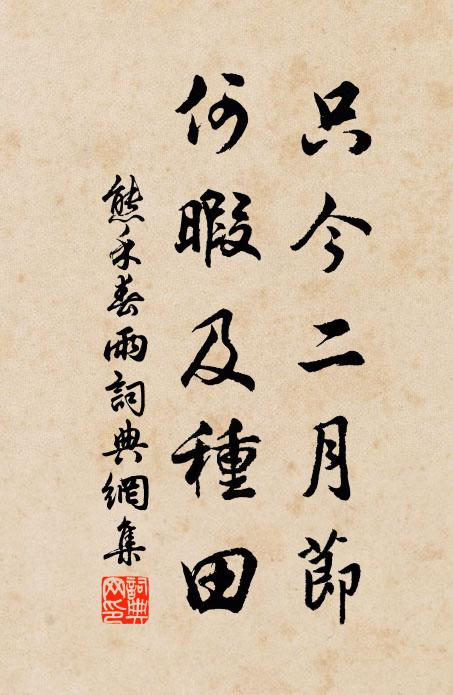 只今二月節
何暇及種田
熊禾春雨詞典網集
詞典
网印